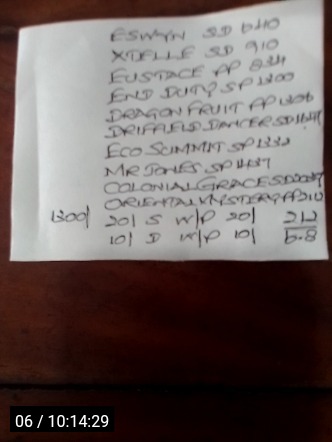 ESWYN SD 640
XTELLE SD 910
EUSTACE PP 834
END DUTY SP 1300
DRAGON FRUIT PP 1306
DRIFFIELD DANCER SD
ECO SUMMIT SP 1332
MR JONES SP 1437
COLONIAL GRACE SD
ORIENTAL MYSTERY PP 212
1300/ 20/ S W/P 20/ 212
10/ D W/P 10/ 6.8
06 / 10:14:29